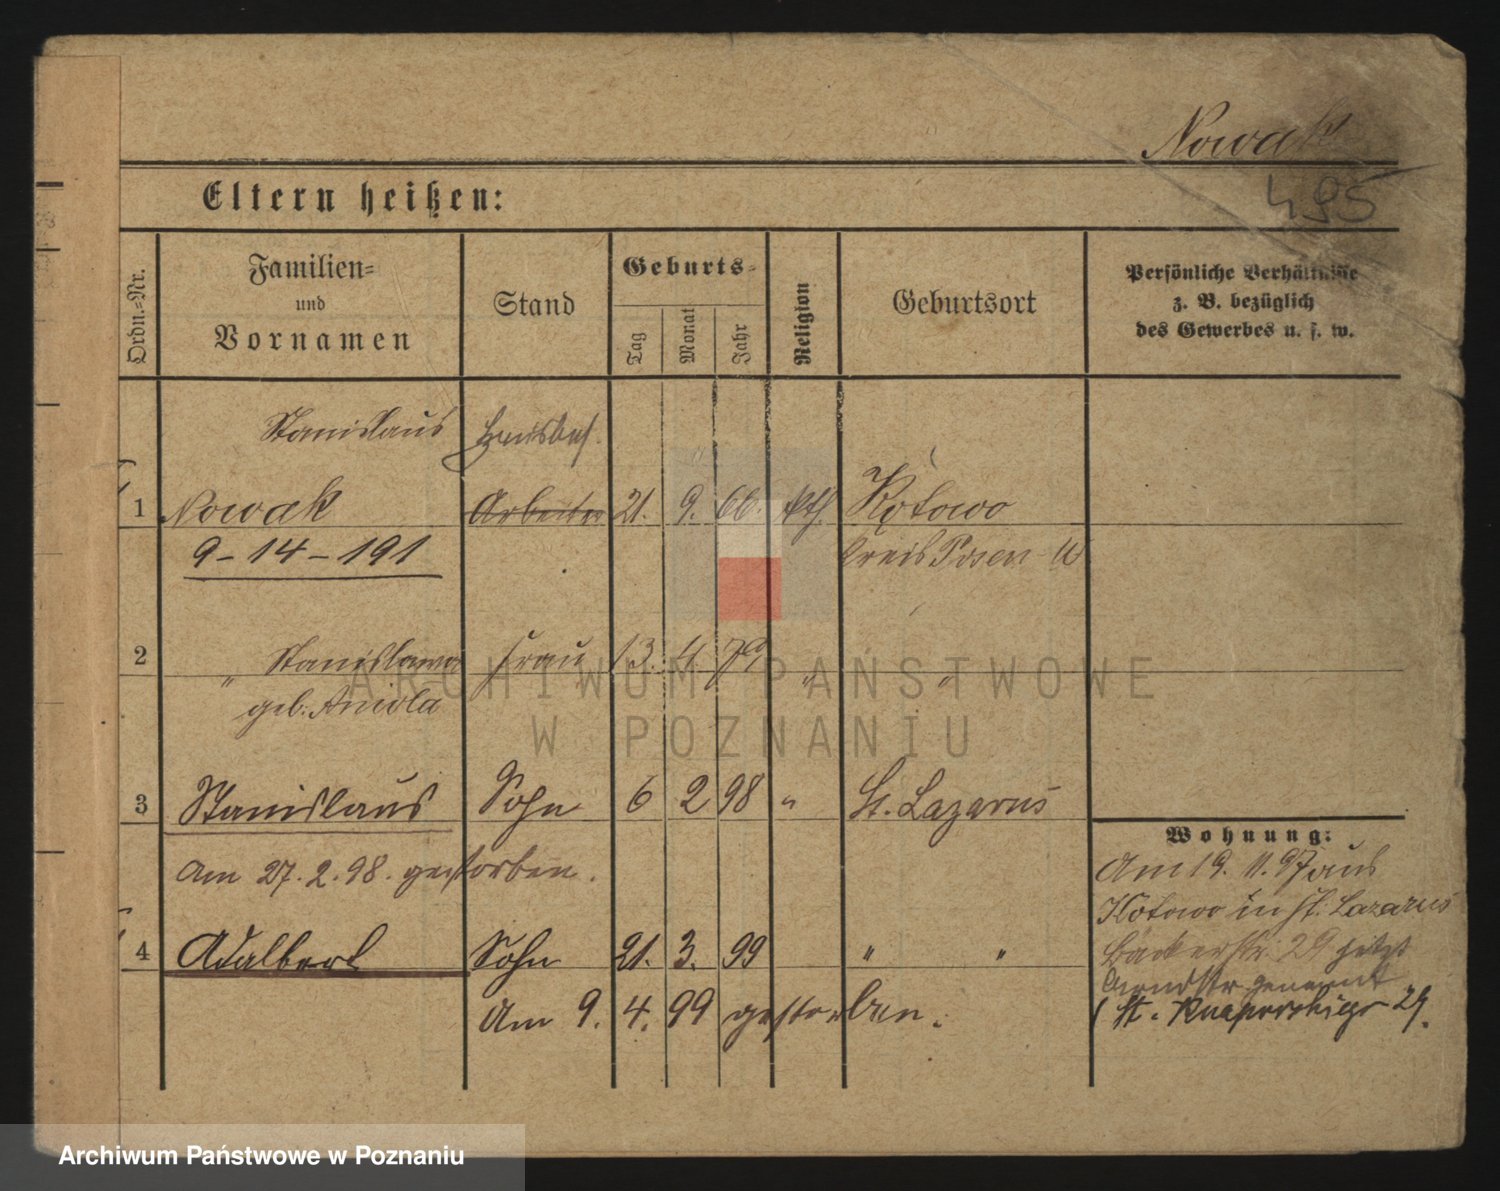 Nowak
495
Eltern heißen:
Ordn.-Nr.
Familien=
und
Vornamen
Stand
Geburts=
Tag
Monat
Jahr
Religion
Geburtsort
Persönliche Verhältnisse
z. B. bezüglich
des Gewerbes u. s. w.
Stanislaus
1 Nowak Arbeiter 21. 9. 66. kth. Kotowo
9-14-191 Kreis Posen W
2 " Stanislawa Frau 13. 4. 79 " "
geb. Aniola
3 Stanislaus Sohn 6 2 98 " St. Lazarus
am 27. 2. 98. gestorben.
4 Adalbert Sohn 21. 3. 99 " "
Am 9. 4. 99 gestorben.
Wohnung:
Am 19. 11. 97 aus
Kotowo in St. Lazarus
Bäckerstr. 29 jetzt
genannt
29.
ARCHIWUM PAŃSTWOWE
W POZNANIU
Archiwum Państwowe w Poznaniu